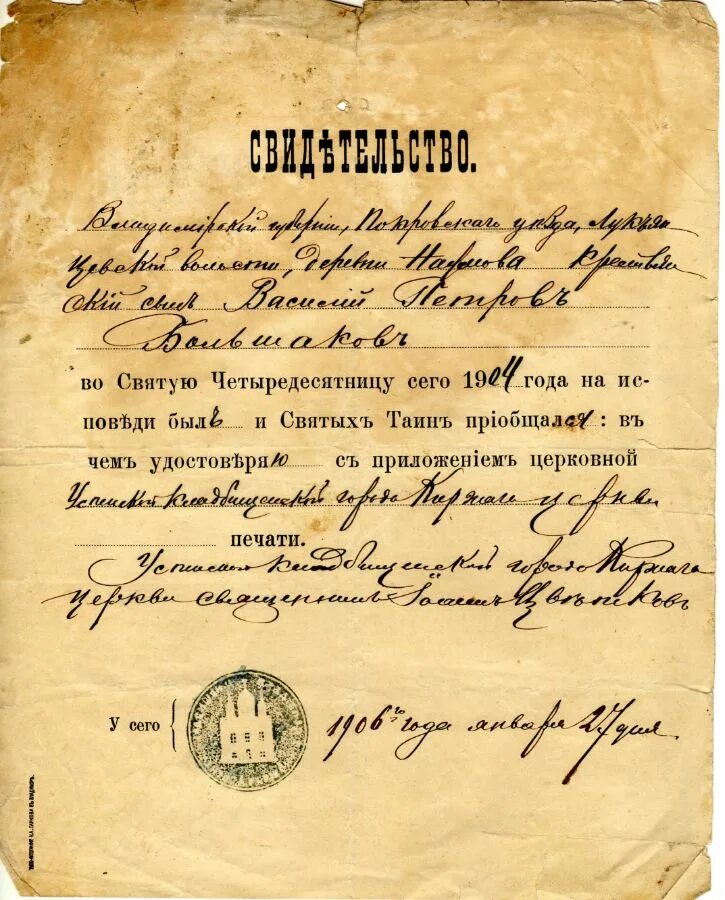 СВИДѢТЕЛЬСТВО.
Владимірской губерніи, Покровскаго уѣзда, Лукьян
цевской волости, деревни Наумова крестьян
скій сынъ Василій Петровъ
Большаковъ
во Святую Четыредесятницу сего 1904 года на ис-
повѣди былъ и Святыхъ Таинъ пріобщался: въ
чемъ удостовѣряю съ приложеніемъ церковной
Успенской кладбищенской города Киржача церкви
печати.
Успенской кладбищенской города Киржача
церкви священникъ Іоаннъ Цвѣтковъ
У сего
1906го года января 27 дня